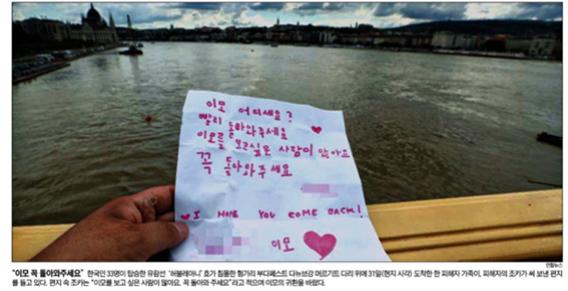 이모 어디세요?
빨리 돌아와주세요
이모를 보고싶은 사람이 많아요
꼭 돌아와주세요
I HOPE YOU COME BACK!
이모
연합뉴스
"이모 꼭 돌아와주세요" 한국인 33명이 탑승한 유람선 '허블레아니' 호가 침몰한 헝가리 부다페스트 다뉴브강 머르기트 다리 위에 31일(현지 시각) 도착한 한 피해자 가족이, 피해자의 조카가 써 보낸 편지
를 들고 있다. 편지 속 조카는 "이모를 보고 싶은 사람이 많아요. 꼭 돌아와 주세요"라고 적으며 이모의 귀환을 바랐다.